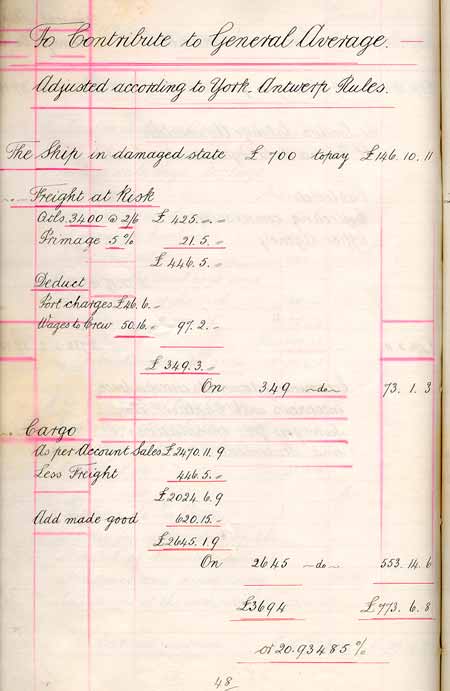 To Contribute to General Average. —
Adjusted according to York. Antwerp Rules.
The Ship in damaged state £ 700 to pay £146. 10. 11
Freight at Risk
3400 @ 2/6 £ 425. „ „
Primage 5 % 21. 5. „
£ 446. 5. „
Deduct
Port charges £46. 6. „
Wages to Crew 50.16. „ 97. 2. „
£ 349. 3. „
On 349 —do— 73. 1. 3
Cargo
As per Account Sales £2470. 11. 9
Less Freight 446. 5. „
£2024. 6. 9
Add made good 620. 15. „
£2645. 1. 9
On 2645 —do— 553. 14. 6
£3694 £773. 6. 8
or 20.93485 %
48